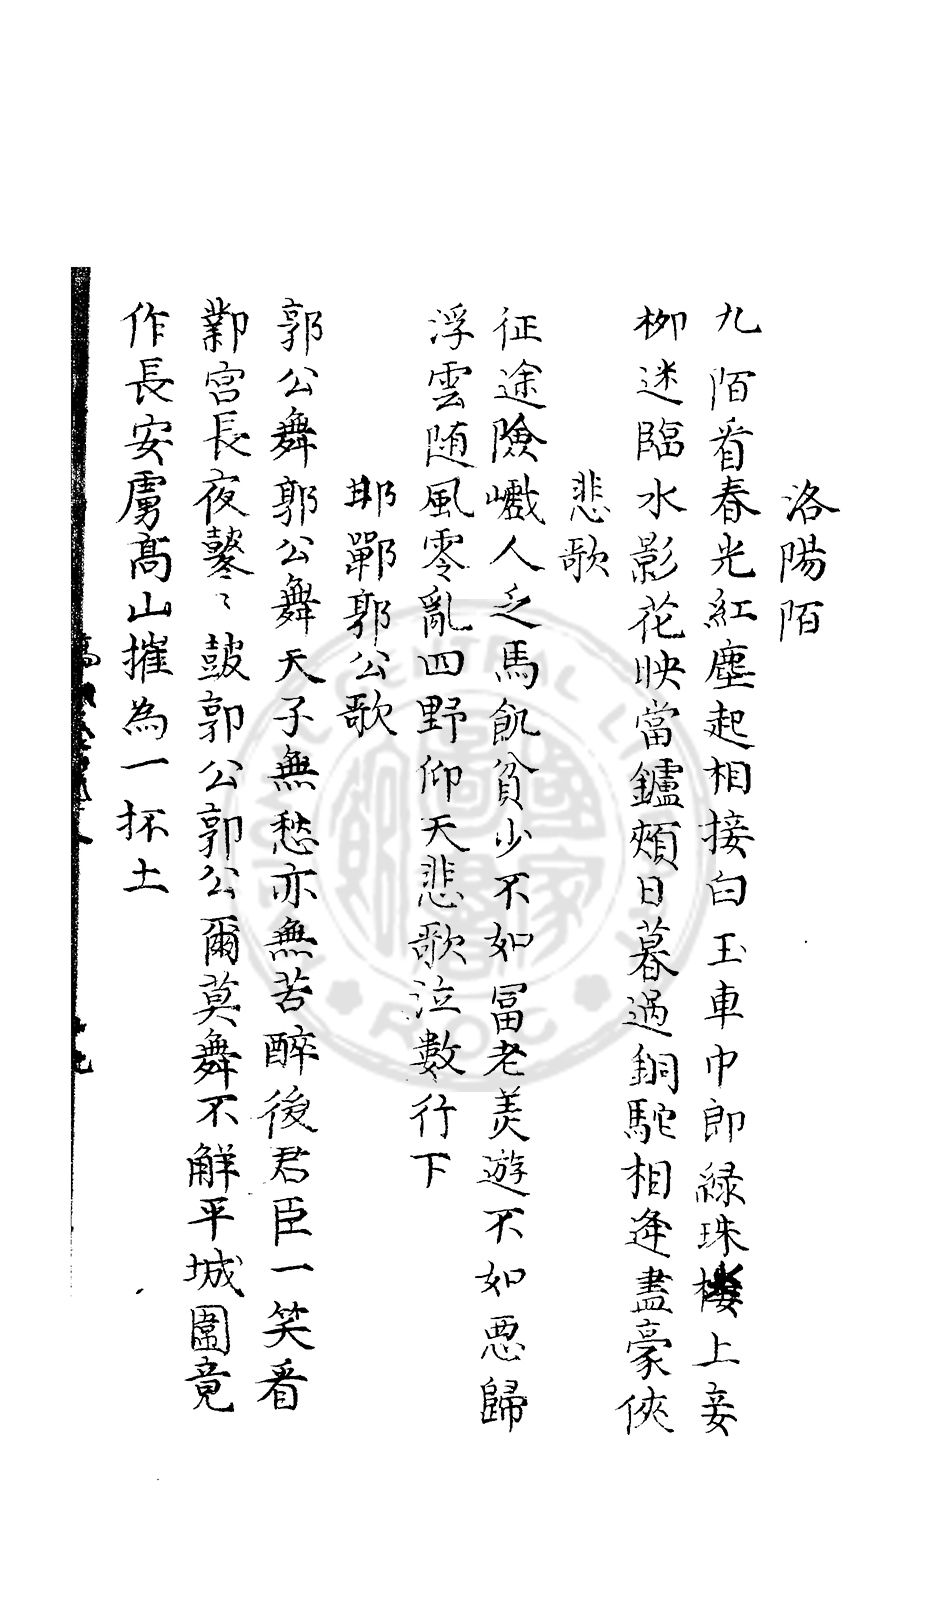 洛陽陌
九陌看春光紅塵起相接白玉車巾郎緑珠樓上妾
栁迷臨水影花映當鑪頰日暮過銅駝相逢盡豪俠
悲歌
征途險巇人乏馬飢貧少不如冨老美遊不如惡歸
浮雲随風零亂四野仰天悲歌泣數行下
邯鄲郭公歌
郭公舞郭公舞天子無愁亦無苦醉後君臣一笑看
鄴宮長夜鼕〻鼓郭公郭公爾莫舞不解平城圍竟
作長安虜髙山摧為一抔土